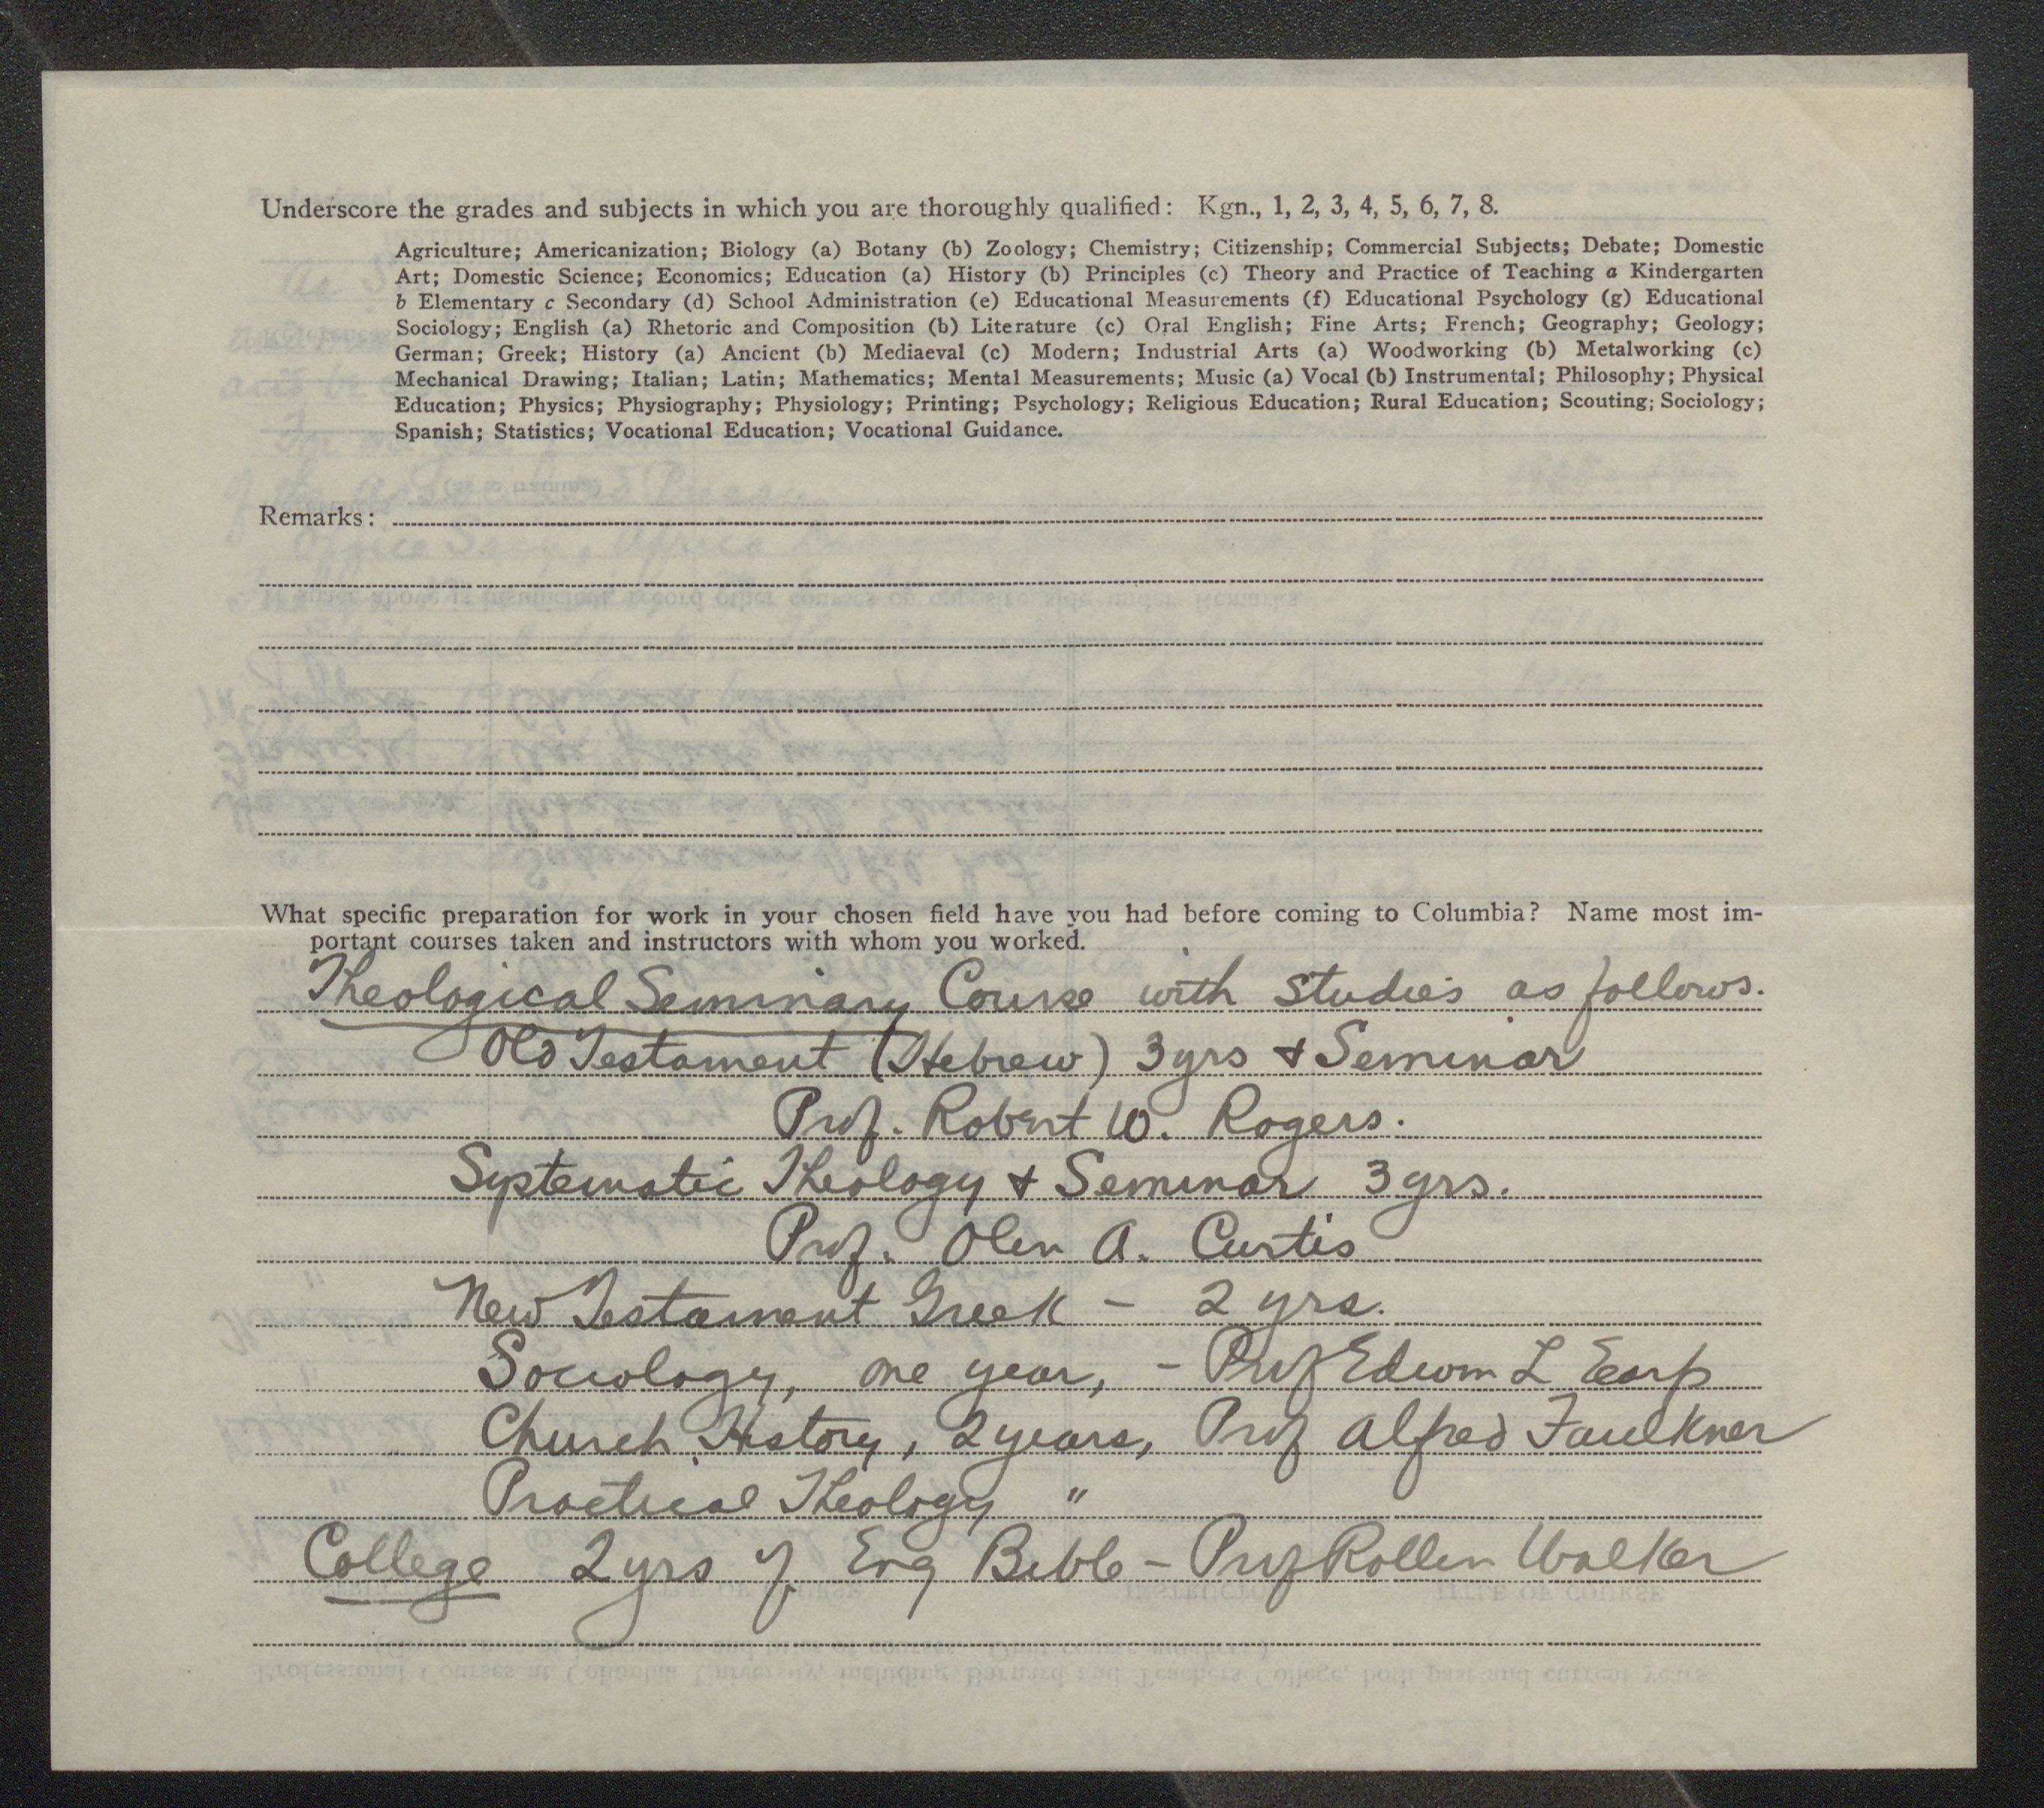 Underscore the grades and subjects in which you are thoroughly qualified: Kgn., 1, 2, 3, 4, 5, 6, 7, 8.
Agriculture; Americanization; Biology (a) Botany (b) Zoology; Chemistry; Citizenship; Commercial Subjects; Debate; Domestic
Art; Domestic Science; Economics; Education (a) History (b) Principles (c) Theory and Practice of Teaching a Kindergarten
b Elementary c Secondary (d) School Administration (e) Educational Measurements (f) Educational Psychology (g) Educational
Sociology; English (a) Rhetoric and Composition (b) Literature (c) Oral English; Fine Arts; French; Geography; Geology;
German; Greek; History (a) Ancient (b) Mediaeval (c) Modern; Industrial Arts (a) Woodworking (b) Metalworking (c)
Mechanical Drawing; Italian; Latin; Mathematics; Mental Measurements; Music (a) Vocal (b) Instrumental; Philosophy; Physical
Education; Physics; Physiography; Physiology; Printing; Psychology; Religious Education; Rural Education; Scouting; Sociology;
Spanish; Statistics; Vocational Education; Vocational Guidance.
Remarks:
What specific preparation for work in your chosen field have you had before coming to Columbia? Name most im-
portant courses taken and instructors with whom you worked.
Theological Seminary Course with studies as follows.
Old Testament (Hebrew) 3 yrs + Seminar
Prof. Robert W. Rogers.
Systematic Theology + Seminar 3 yrs.
Prof. Olin A. Curtis
New Testament Greek - 2 yrs.
Sociology, one year, - Prof Edwin L Earp
Church History, 2 years, Prof Alfred Faulkner
Practical Theology "
College 2 yrs of Eng Bible - Prof Rollin Walker